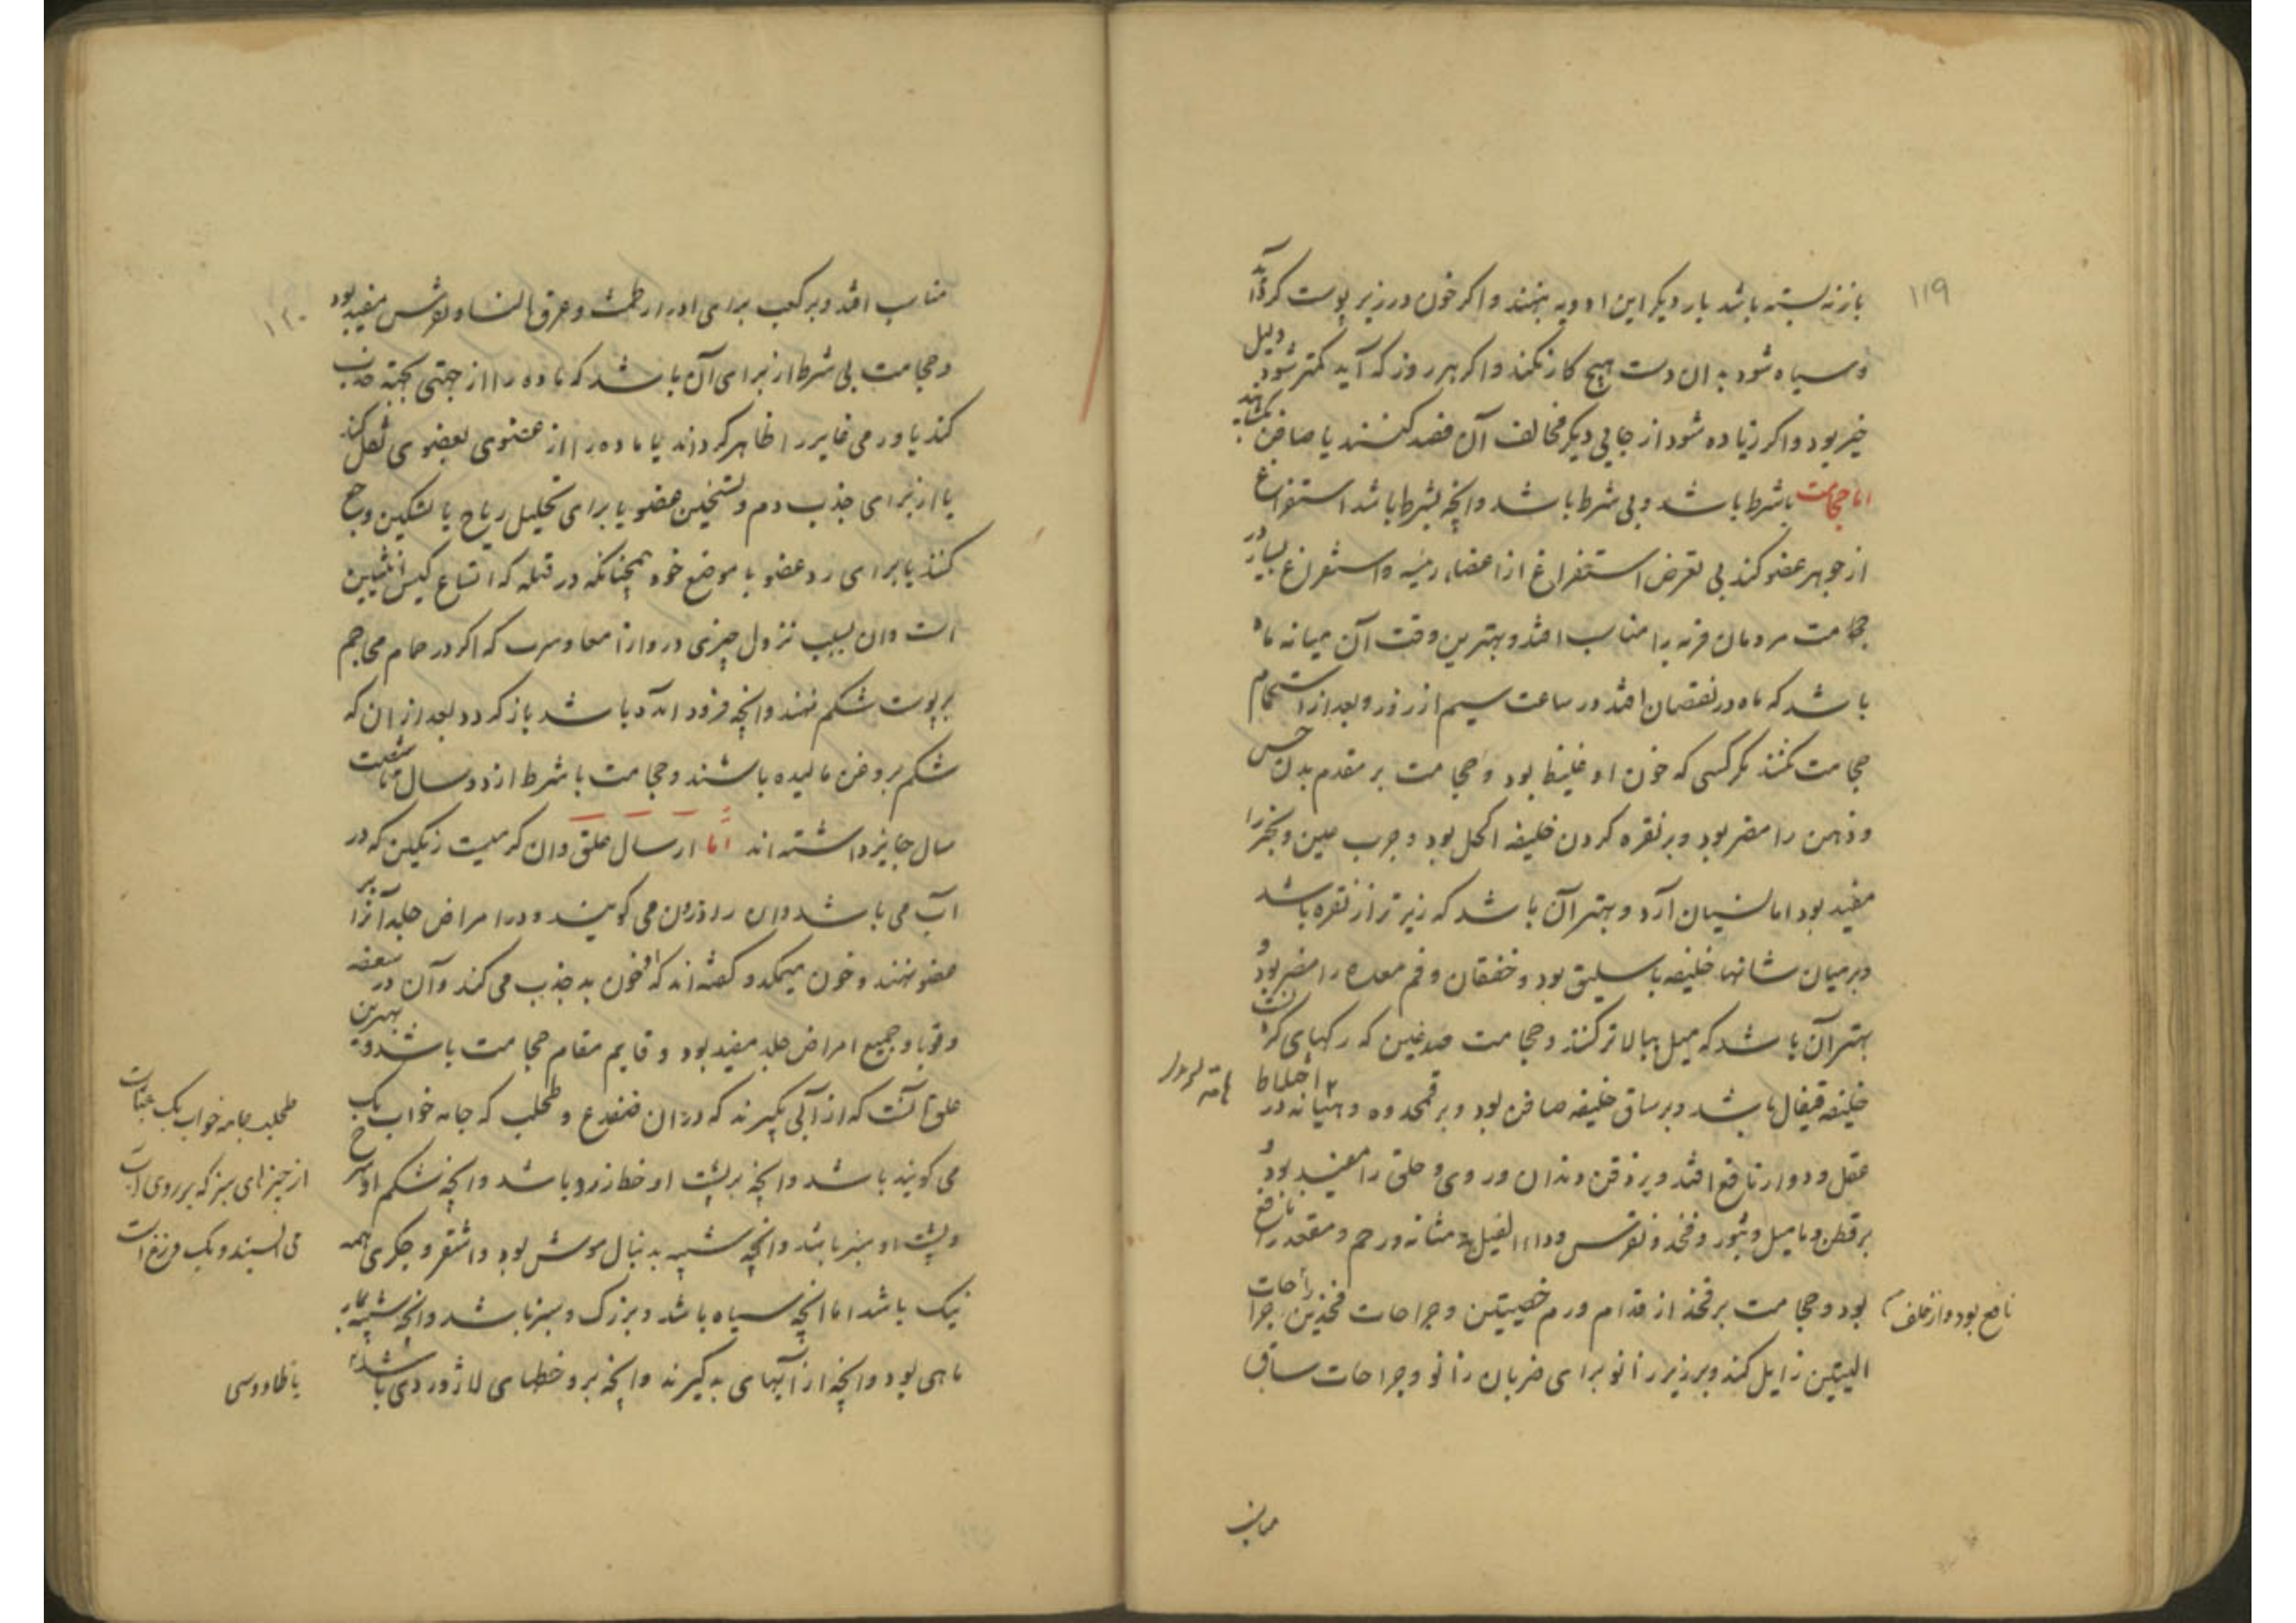 ۱۱۹
باز نه بسته باشد بار دیکر این ادویه بنهند و اکر خون در زیر پوست کرد آید
و سیاه شود به آن دست هیچ کار نکند و اکر هر روز که آید کمتر شود دلیل
خیر بود و اکر زیاده شود از جایی دیکر مخالف آن فصد کنند یا صافن بکشایند
اما حجامت باشرط باشد و بی شرط باشد و انچه بشرط باشد استفراغ
از جوهر عضو کند بی تعرض استفراغ از اعضاء رئیسه و استفراغ بسیار در
حجامت مردمان فربه را مناسب افتد و بهترین وقت آن میانه ماه
باشد که ماه در نقصان افتد در ساعت سیم از روز و بعد از استحمام
حجامت نکنند مکر کسی که خون او غلیظ بود و حجامت بر مقدم بدن حس
و ذهن را مضر بود و بر نقره کردن خلیفه اکحل بود و جرب عین و بخر را
مفید بود اما نسیان آرد و بهتر آن باشد که زیرتر از نقره باشد
و بر میان شانها خلیفه باسلیق بود و خفقان و فم معده را مضر بود و
بهتر آن باشد که میل ببالاتر کنند و حجامت صدغین که رکهای کردنست
خلیفه قیفال باشد و بر ساق خلیفه صافن بود و بر قمحدوه و میانه در اختلاط
عقل و دوار نافع افتد و بر ذقن دندان و روی و حلق را مفید بود و
بر قطن دمامیل و بثور و فخذ و نقرس و داء الفیل و مثانه و رحم و مقعد را نافع
بود و حجامت بر فخذ از قدام ورم خصیتین و جراحات فخذین را جراحات
نافع بود و از خلف
الیتین زایل کند و بر زیر زانو برای ضربان زانو و جراحات ساق
مناسب
۱۲۰
مناسب افتد و بر کعب برای ادرار طمث و عرق النسا و نقرس مفید بود
و حجامت بی شرط از برای آن باشد که ماده را از جهتی بجهتی جذب
کند یا ورمی غایر را ظاهر کرداند یا ماده را از عضوی بعضوی نقل کند
یا از برای جذب دم و تسخین عضو یا برای تحلیل ریاح یا تسکین وجع
کنند یا برای رد عضو با موضع خود همچنانکه در قیله که اتساع کیس انثیین
است و آن بسبب نزول چیزی در وی از امعا و سرب که اکر در حمام محاجم
بر پوست شکم نهند و انچه فرود آمده باشد باز کردد بعد از آن که
شکم بروغن مالیده باشند و حجامت با شرط از دو سال تا شصت
سال جایز داشته اند اما ارسال علق و آن کرمیست رنکین که در
آب می باشد و آن را زرون می کویند و در امراض جلد آنرا بر
عضو نهند و خون میمکد و کفته اند که او خون بد جذب می کند و آن در سعفه
و قوبا و جمیع امراض جلد مفید بود و قایم مقام حجامت باشد و بهترین
علق آنست که از آبی بکیرند که در آن ضفدع و طحلب که جامه خواب بک
می کویند باشد و انچه بر پشت او خط زرد باشد و انچه شکم او سرخ
و پشت او سبز باشد و انچه شبیه به دنبال موش بود و اشقر و جکری همه
نیک باشد اما انچه سیاه باشد و بزرک و سبز باشد و انچه شبیه بمار
ماهی بود و انچه از آبهای بد کیرند و انچه برو خطهای لاژوردی باشد
طحلب جامه خواب بک عبارت
از چیزهای سبز که بر روی آب
می ایستند و بک فرزغ است
یا طاووسی